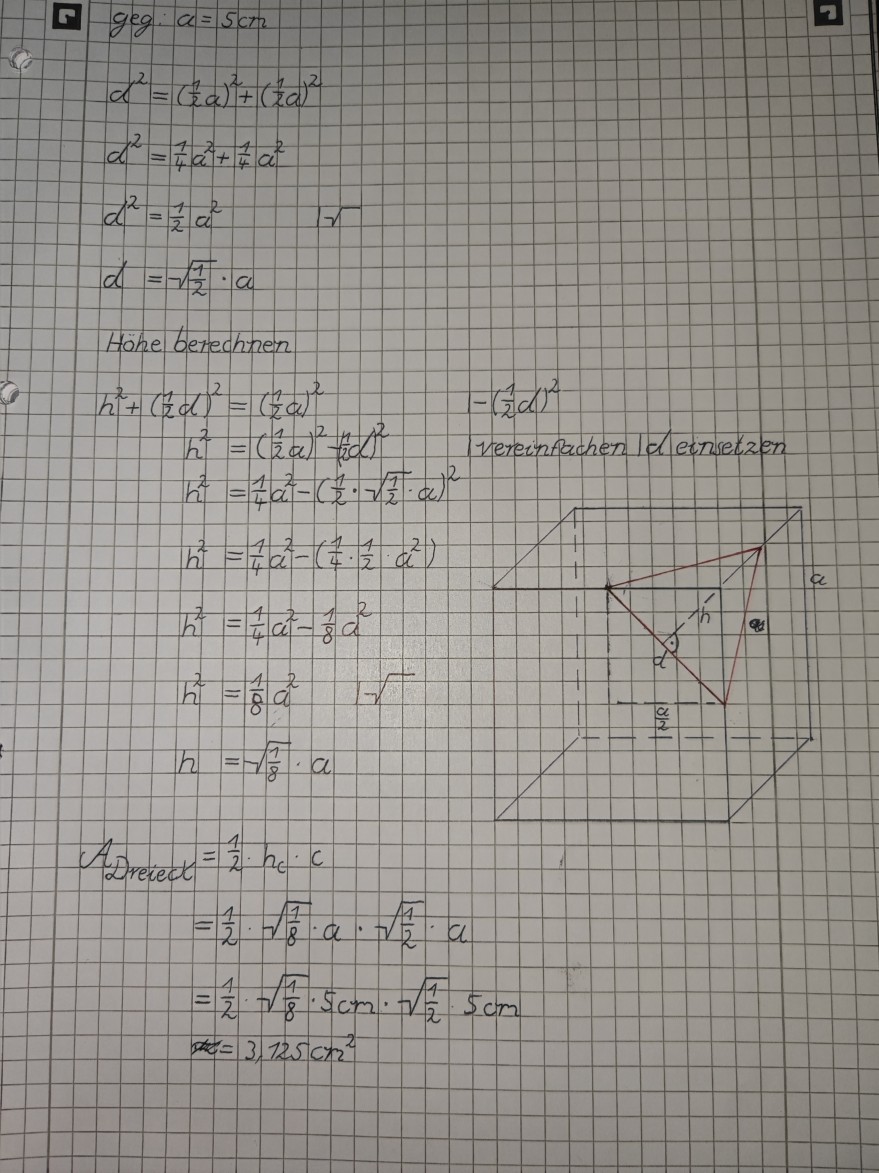 geg: a = 5cm
d² = (½a)² + (½a)²
d² = ¼a² + ¼a²
d² = ½ a² |√
d = √½ · a
Höhe berechnen
h² + (½d)² = (½a)² |-(½d)²
h² = (½a)² - (½d)² |vereinfachen |d einsetzen
h² = ¼a² - (½ · √½ · a)²
h² = ¼a² - (¼ · ½ · a²)
h² = ¼a² - ⅛a²
h² = ⅛a² |√
h = √⅛ · a
a
h
d
a/2
A_Dreieck = ½ · h_c · c
= ½ · √⅛ · a · √½ · a
= ½ · √⅛ · 5cm · √½ · 5cm
= 3,125cm²